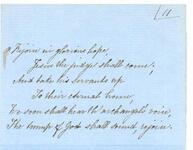 11
Rejoice in glorious hope,
Jesus the judge shall come,
And take his servants up
To their eternal home,
We soon shall hear th' archangel's voice,
The trump of God shall sound, rejoice.